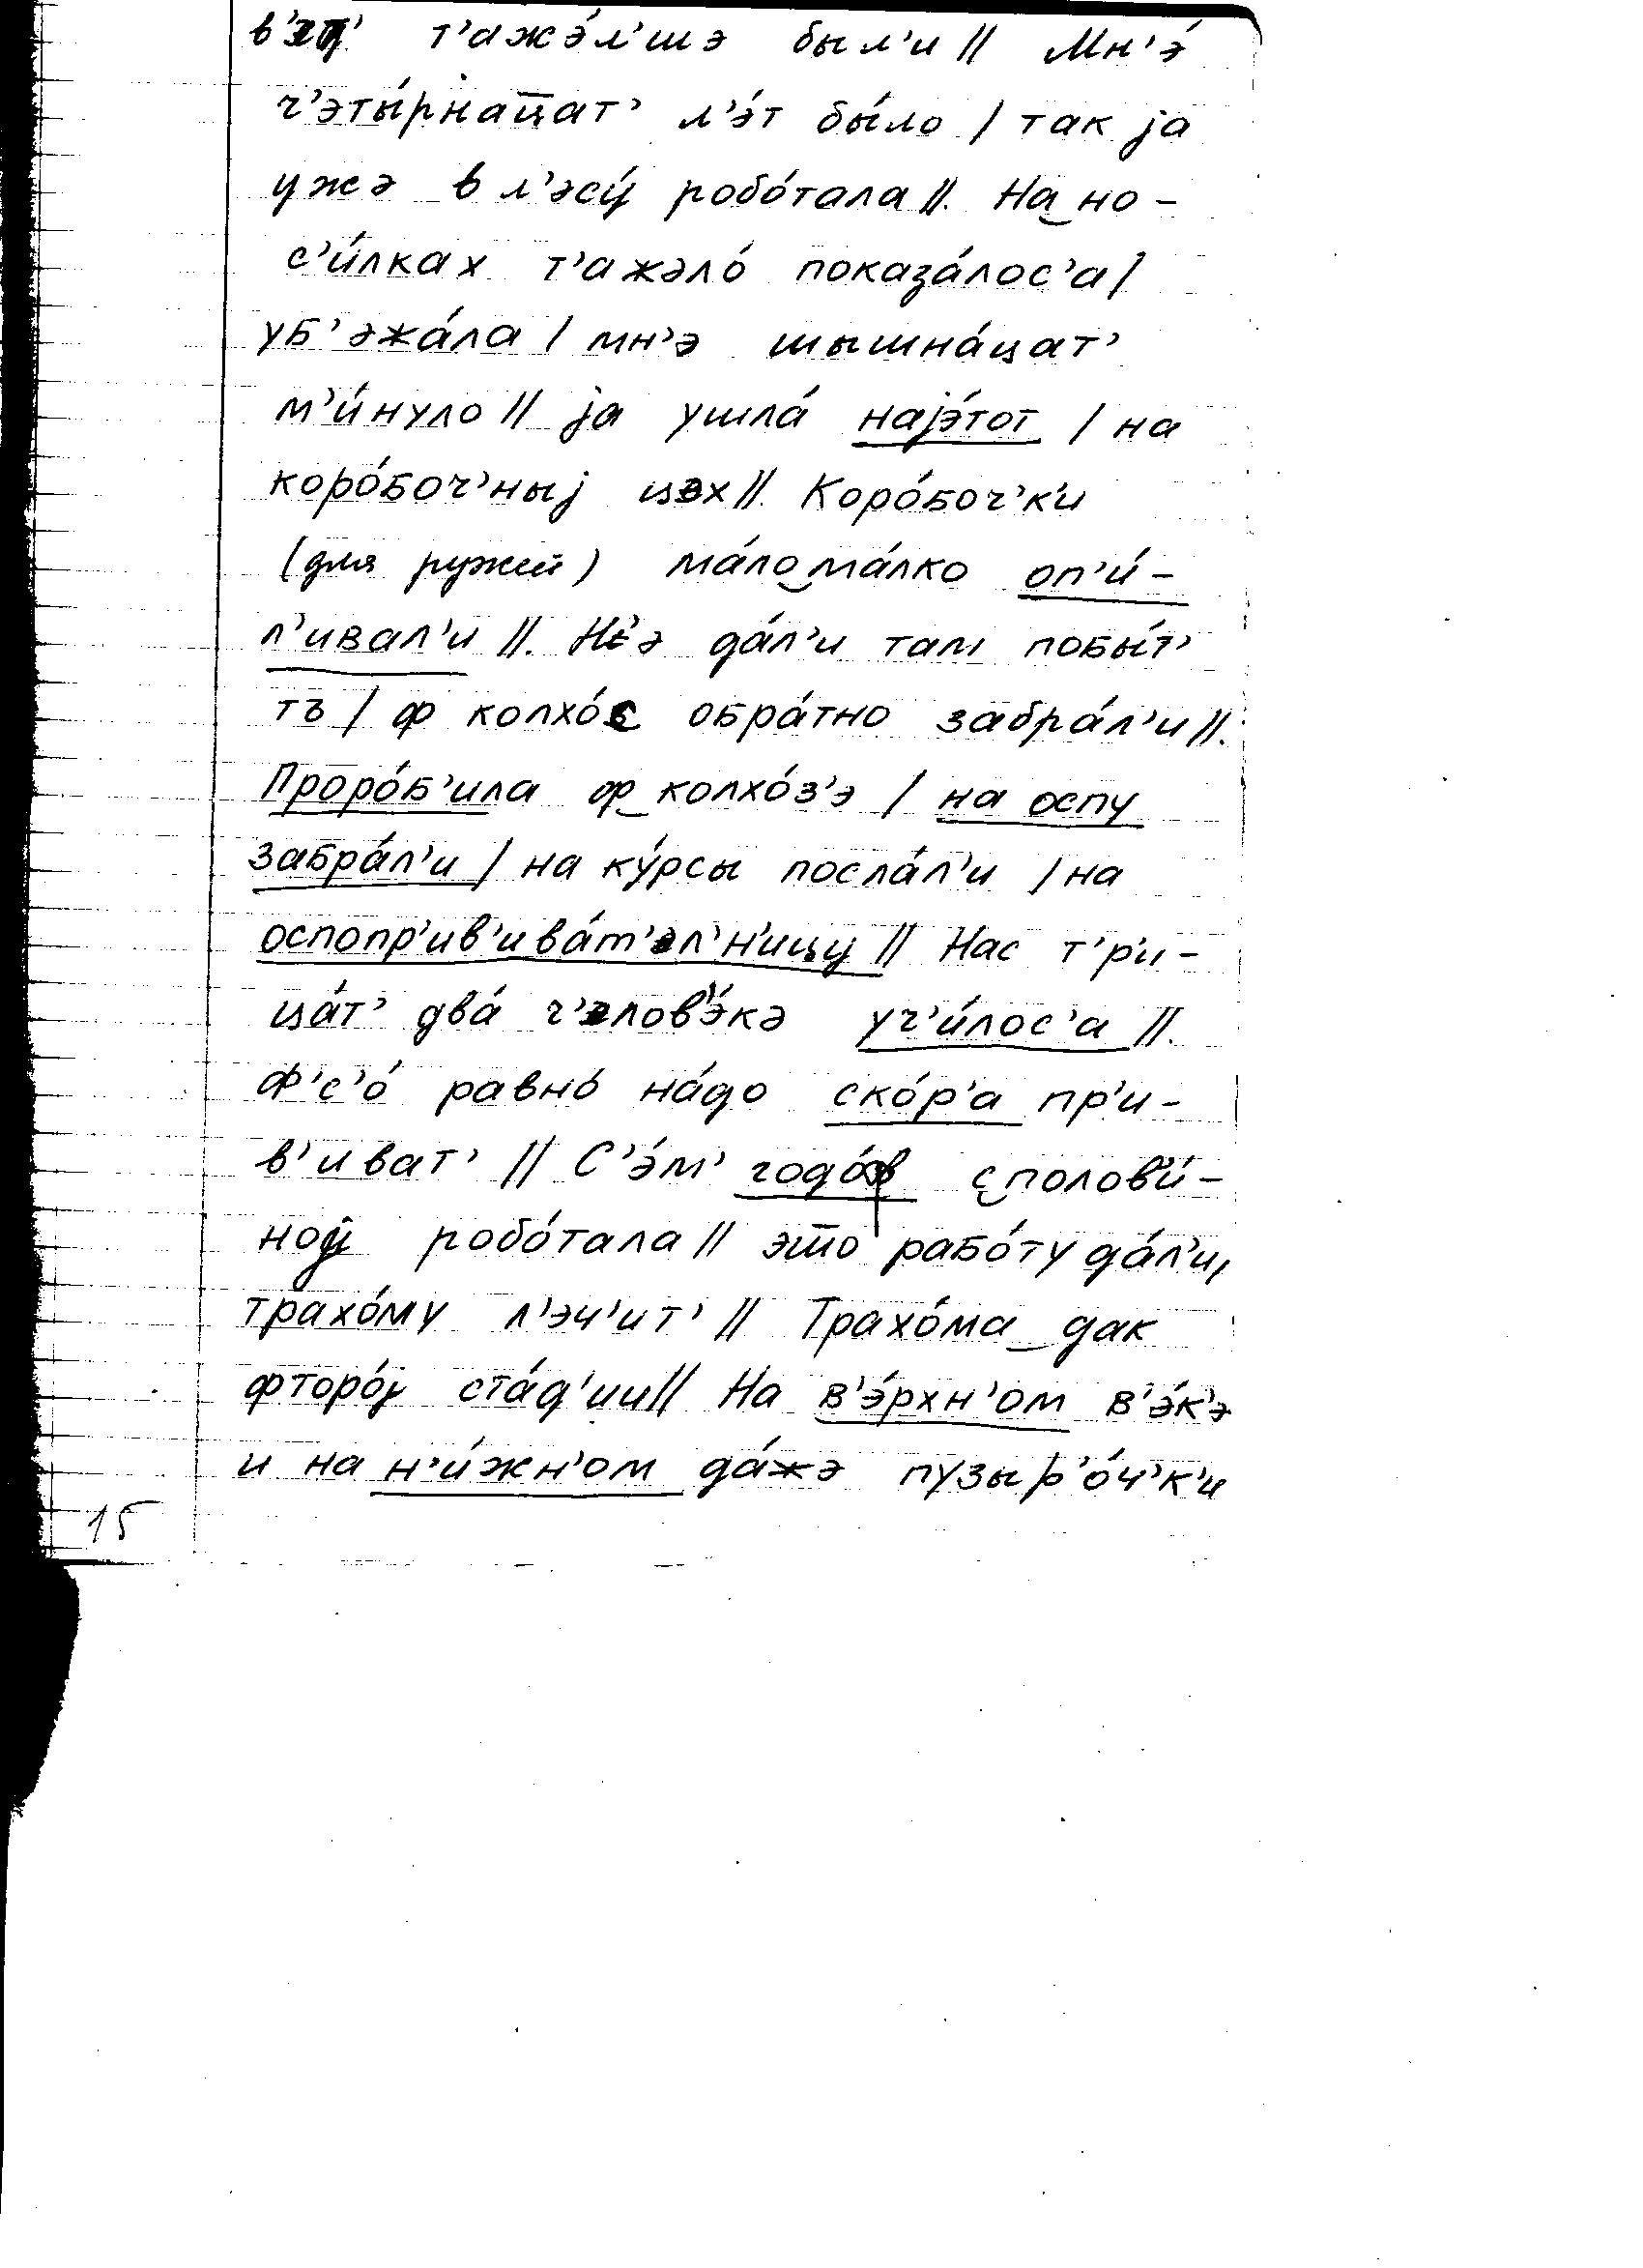 т’ажэ́л’шэ был’и // Мн’э́
ч’эты́рнацат’ л’э́т бы́ло / так jа
ужэ в л’эсу́ робо́тала //. На‿но-
с’и́лках т’ажэло́ показа́лос’а /
уб’эжа́ла / мн’э шышна́цат’
м’и́нуло // jа ушла́ наjэ́тот / на
коро́боч’ныj цэх //. Коро́боч’к’и
(для ружей) ма́ло‿ма́лко оп’и́-
л’ивал’и //. Н’э да́л’и там побы́т’
тъ / ф колхо́с обра́тно забра́л’и //.
Проро́б’ила ф‿колхо́з’э / на оспу
забра́л’и / на ку́рсы посла́л’и / на
оспопр’ив’ива́т’эл’н’ицу // Нас т’р’и-
ца́т’ два́ ч’элов’э́кэ уч’и́лос’а //.
Ф’с’о́ равно́ на́до ско́р’а пр’и-
в’иват’ // С’э́м’ годо́ф с‿полов’и́-
ноj робо́тала // это рабо́ту да́л’и,
трахо́му л’эч’ит’ // Трахо́ма‿дак
фторо́j ста́д’ии // На в’э́рхн’ом в’э́к’э
и на н’и́жн’ом да́жэ пузыр’о́ч’к’и
15